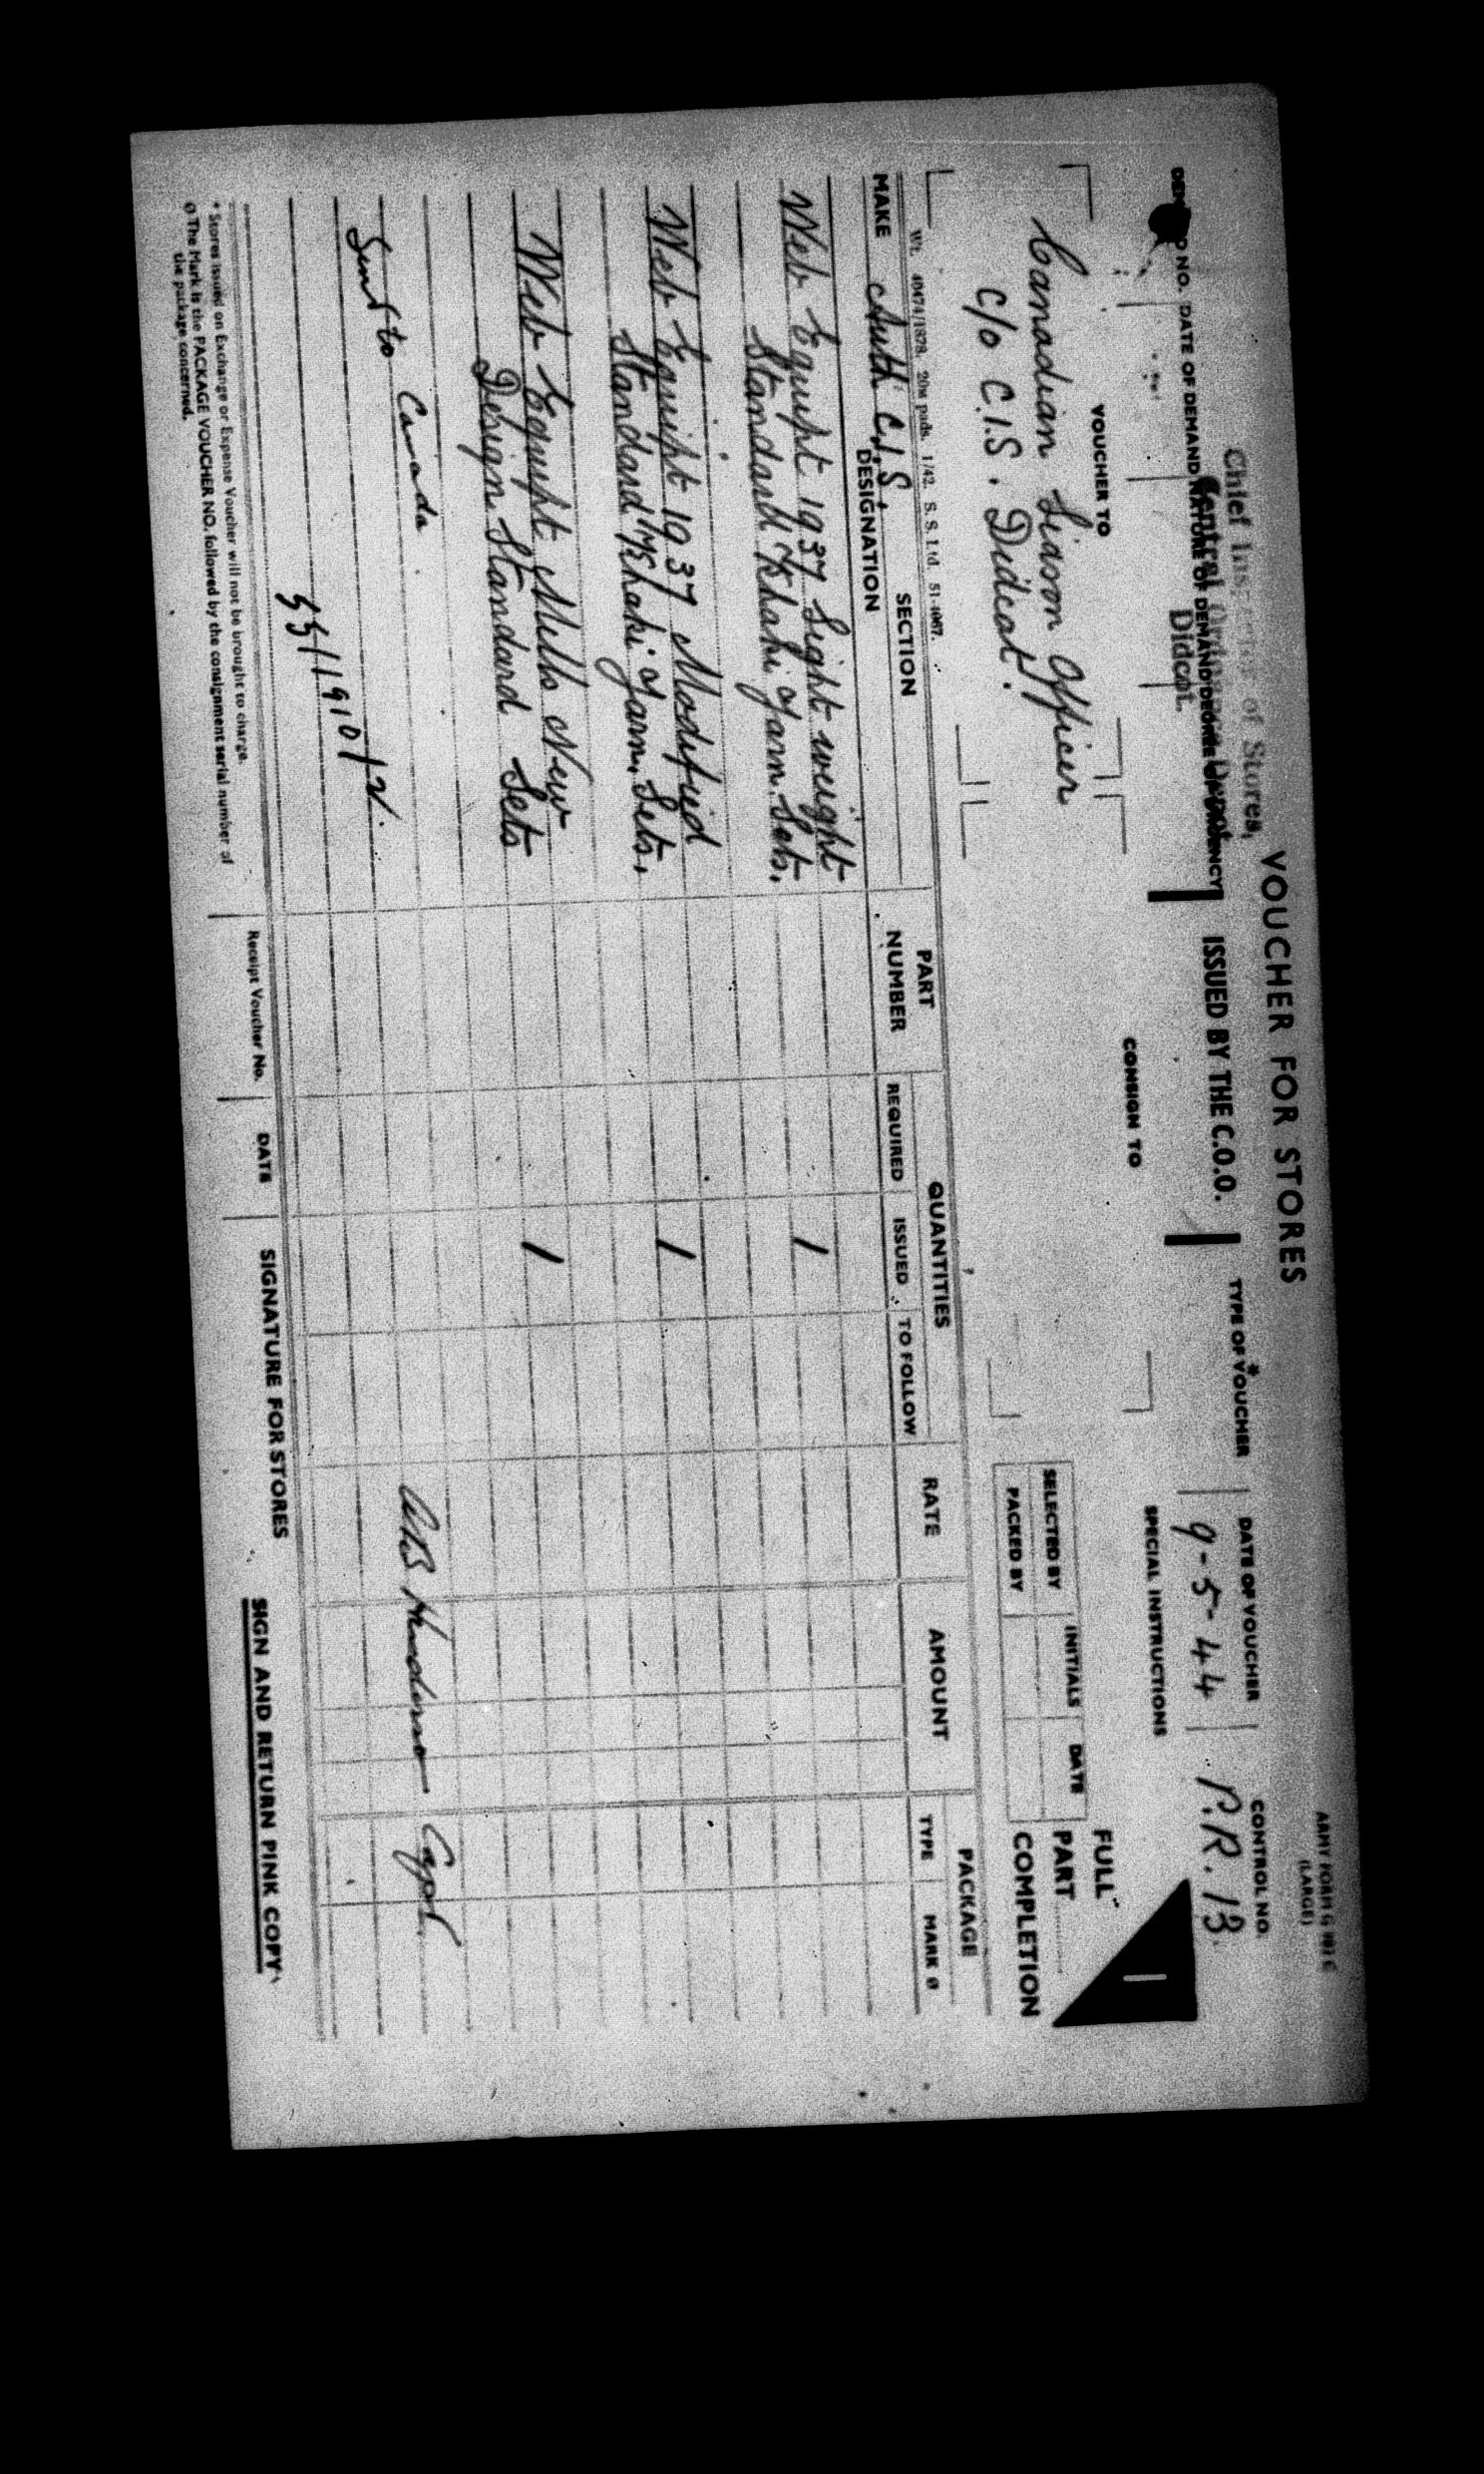 ARMY FORM G 981 C
(LARGE)
VOUCHER FOR STORES
Chief Inspector of Stores,
Central Ordnance Depot
Didcot.
DEPOT NO. DATE OF DEMAND NATURE OF DEMAND DEGREE OF URGENCY
ISSUED BY THE C.O.O.
TYPE OF VOUCHER *
DATE OF VOUCHER
9-5-44
CONTROL NO.
P.R. 13.
VOUCHER TO
CONSIGN TO
SPECIAL INSTRUCTIONS
Canadian Liason Officer
c/o C.I.S. Didcot.
INITIALS DATE
SELECTED BY
PACKED BY
FULL
PART
COMPLETION
1
Wt. 40474/1878. 20m pads. 1/42. S. S. Ltd. 51-4067.
SECTION
MAKE Auth C.I.S.
DESIGNATION
PART NUMBER
QUANTITIES
REQUIRED ISSUED TO FOLLOW
RATE
AMOUNT
PACKAGE
TYPE MARK Ø
Web Equipt 1937 Light weight
Standard Khaki Yarn. Sets. 1
Web Equipt 1937 Modified
Standard Khaki Yarn. Sets. 1
Web Equipt Mills New
Design. Standard Sets 1
Sent to Canada
Henderson Capt.
55/1910/2.
* Stores issued on Exchange or Expense Voucher will not be brought to charge.
Ø The Mark is the PACKAGE VOUCHER NO. followed by the consignment serial number of
the package concerned.
Receipt Voucher No.
DATE
SIGNATURE FOR STORES
SIGN AND RETURN PINK COPY